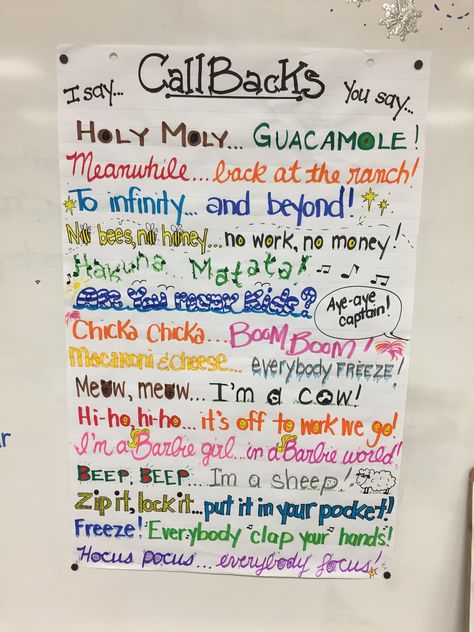 CallBacks
I say... You say...
Holy Moly... Guacamole!
Meanwhile.... back at the ranch!
To infinity... and beyond!
No bees, no honey... no work, no money!
Hakuna... Matata!
Are You ready Kids?
Aye-aye captain!
Chicka Chicka... Boom Boom!
Macaroni & cheese... everybody FREEZE!
Meow, meow... I'm a cow!
Hi-ho, hi-ho... it's off to work we go!
I'm a Barbie girl... in a Barbie world!
Beep, Beep... I'm a sheep!
Zip it, lock it... put it in your pocket!
Freeze! Everybody clap your hands!
Hocus pocus... everybody focus!